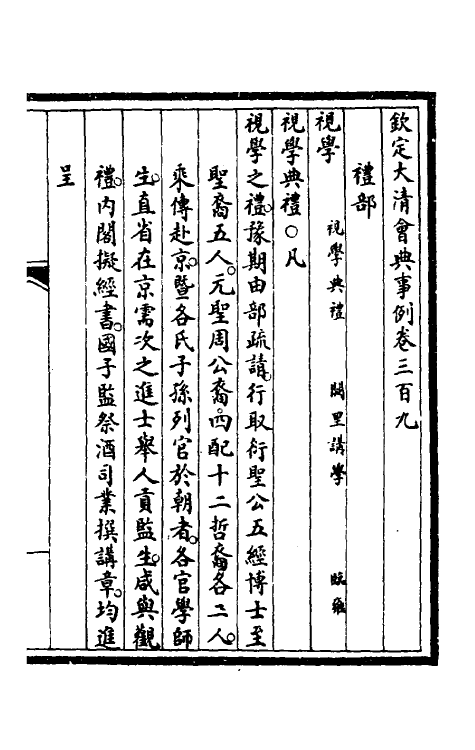 欽定大清會典事例卷三百九
禮部
視學 視學典禮 闕里講學 臨雍
視學典禮○凡
視學之禮。豫期由部疏請。行取衍聖公五經博士至
聖裔五人。元聖周公裔。四配十二哲裔各二人。
乘傳赴京。暨各氏子孫列官於朝者。各官學師
生。直省在京需次之進士舉人貢監生。咸與觀
禮。內閣擬經書。國子監祭酒司業撰講章。均進
呈